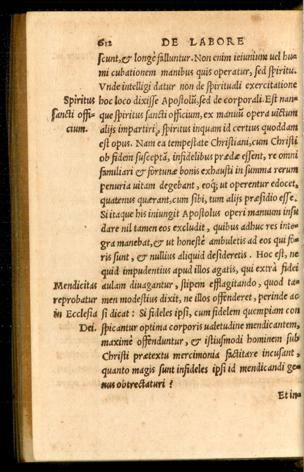 612 DE LABORE
scunt, & longè falluntur. Non enim ieiuniũm vel hu-
mi cubationem manibus quis operatur, sed spiritu.
Vnde intelligi datur non de spirituali exercitatione
hoc loco dixisse Apostolũ, sed de corporali. Est nan-
que spiritus sancti officium, ex manuũ opera victum
alijs impartiri, spiritus inquam id certus quoddam
est opus. Nam ea tempestate Christiani, cum Christi
ob fidem susceptã, infidelibus prædæ essent, re omni
familiari & fortunæ bonis exhausti in summa rerum
penuria vitam degebant, eoq́; ut operentur edocet,
quatenus quærant, cum sibi, tum alijs præsidio esse.
Si itaque his iniungit Apostolus operi manuum insu
dare nil tamen eos excludit, quibus adhuc res inte-
gra manebat, & ut honestè ambuletis ad eos qui fo-
ris sunt, & nullius aliquid desideretis. Hoc est, ne
quid impudentius apud illos agatis, qui extrà fidei
aulam diuagantur, stipem efflagitando, quod ta-
men modestius dixit, ne illos offenderet, perinde ac
si dicat: Si fideles ipsi, cum fidelem quempiam con
spicantur optima corporis ualetudine mendicantem,
maximè offenduntur, & istiusmodi hominem sub
Christi prætextu mercimonia factitare incusant,
quanto magis sunt infideles ipsi id mendicandi ge-
nus obtrectaturi?
Et in-
Spiritus
sancti offi-
cium.
Mendicitas
reprobatur
in Ecclesia
Dei.